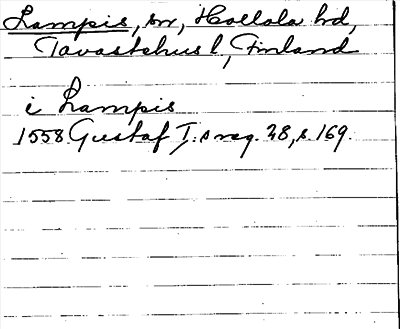 Lampis, sn, Hollola hd,
Tavastehus l, Finland
i Lampis
1558 Gustaf I:s reg. 28, s. 169.